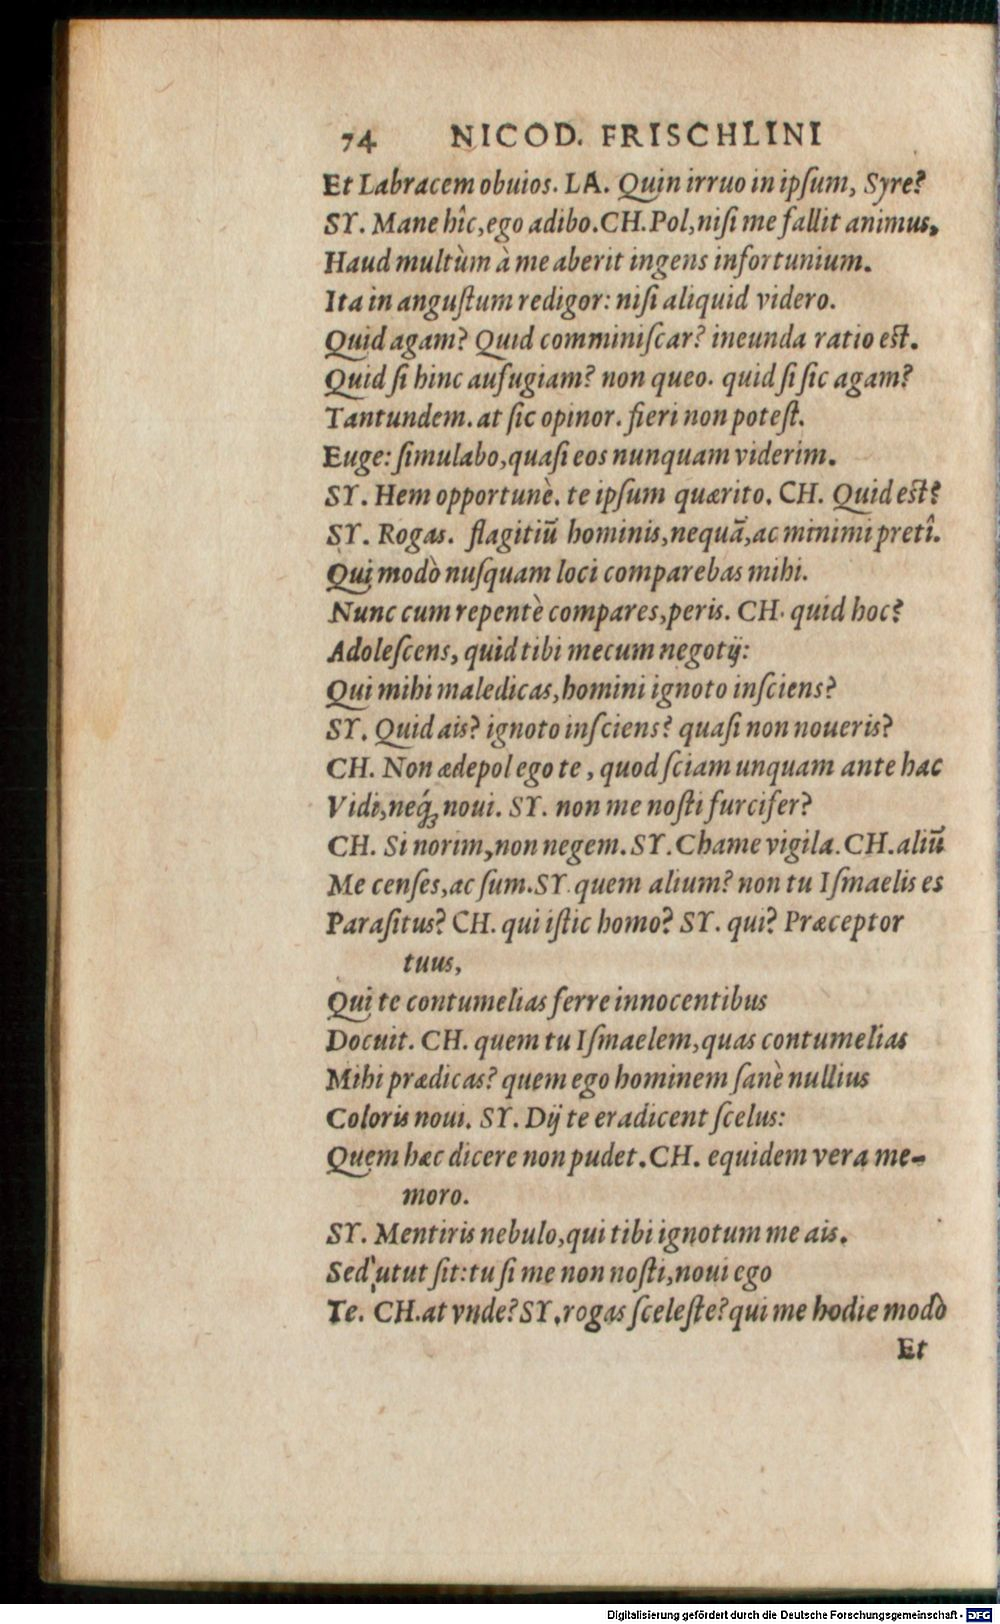 74 NICOD. FRISCHLINI
Et Labracem obuios. LA. Quin irruo in ipſum, Syre?
SY. Mane hîc, ego adibo. CH. Pol, niſi me fallit animus,
Haud multùm à me aberit ingens infortunium.
Ita in anguſtum redigor: niſi aliquid videro.
Quid agam? Quid comminiſcar? ineunda ratio eſt.
Quid ſi hinc aufugiam? non queo. quid ſi ſic agam?
Tantundem. at ſic opinor. fieri non poteſt.
Euge: ſimulabo, quaſi eos nunquam viderim.
SY. Hem opportunè. te ipſum quærito. CH. Quid eſt?
SY. Rogas. flagitiū hominis, nequā, ac minimi pretî.
Qui modò nuſquam loci comparebas mihi.
Nunc cum repentè compares, peris. CH. quid hoc?
Adoleſcens, quid tibi mecum negotij:
Qui mihi maledicas, homini ignoto inſciens?
SY. Quid ais? ignoto inſciens? quaſi non noueris?
CH. Non ædepol ego te, quod ſciam unquam ante hac
Vidi, neq́ꝫ noui. SY. non me noſti furcifer?
CH. Si norim, non negem. SY. Chame vigila. CH. aliū
Me cenſes, ac ſum. SY. quem alium? non tu Iſmaelis es
Paraſitus? CH. qui iſtic homo? SY. qui? Præceptor
tuus,
Qui te contumelias ferre innocentibus
Docuit. CH. quem tu Iſmaelem, quas contumelias
Mihi prædicas? quem ego hominem ſanè nullius
Coloris noui. SY. Dij te eradicent ſcelus:
Quem hæc dicere non pudet. CH. equidem vera me-
moro.
SY. Mentiris nebulo, qui tibi ignotum me ais.
Sed utut ſit: tu ſi me non noſti, noui ego
Te. CH. at vnde? SY. rogas ſceleſte? qui me hodie modò
Et
Digitalisierung gefördert durch die Deutsche Forschungsgemeinschaft - DFG